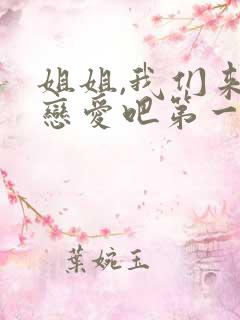 姐姐,我们来
戀愛吧第一
葉婉玉